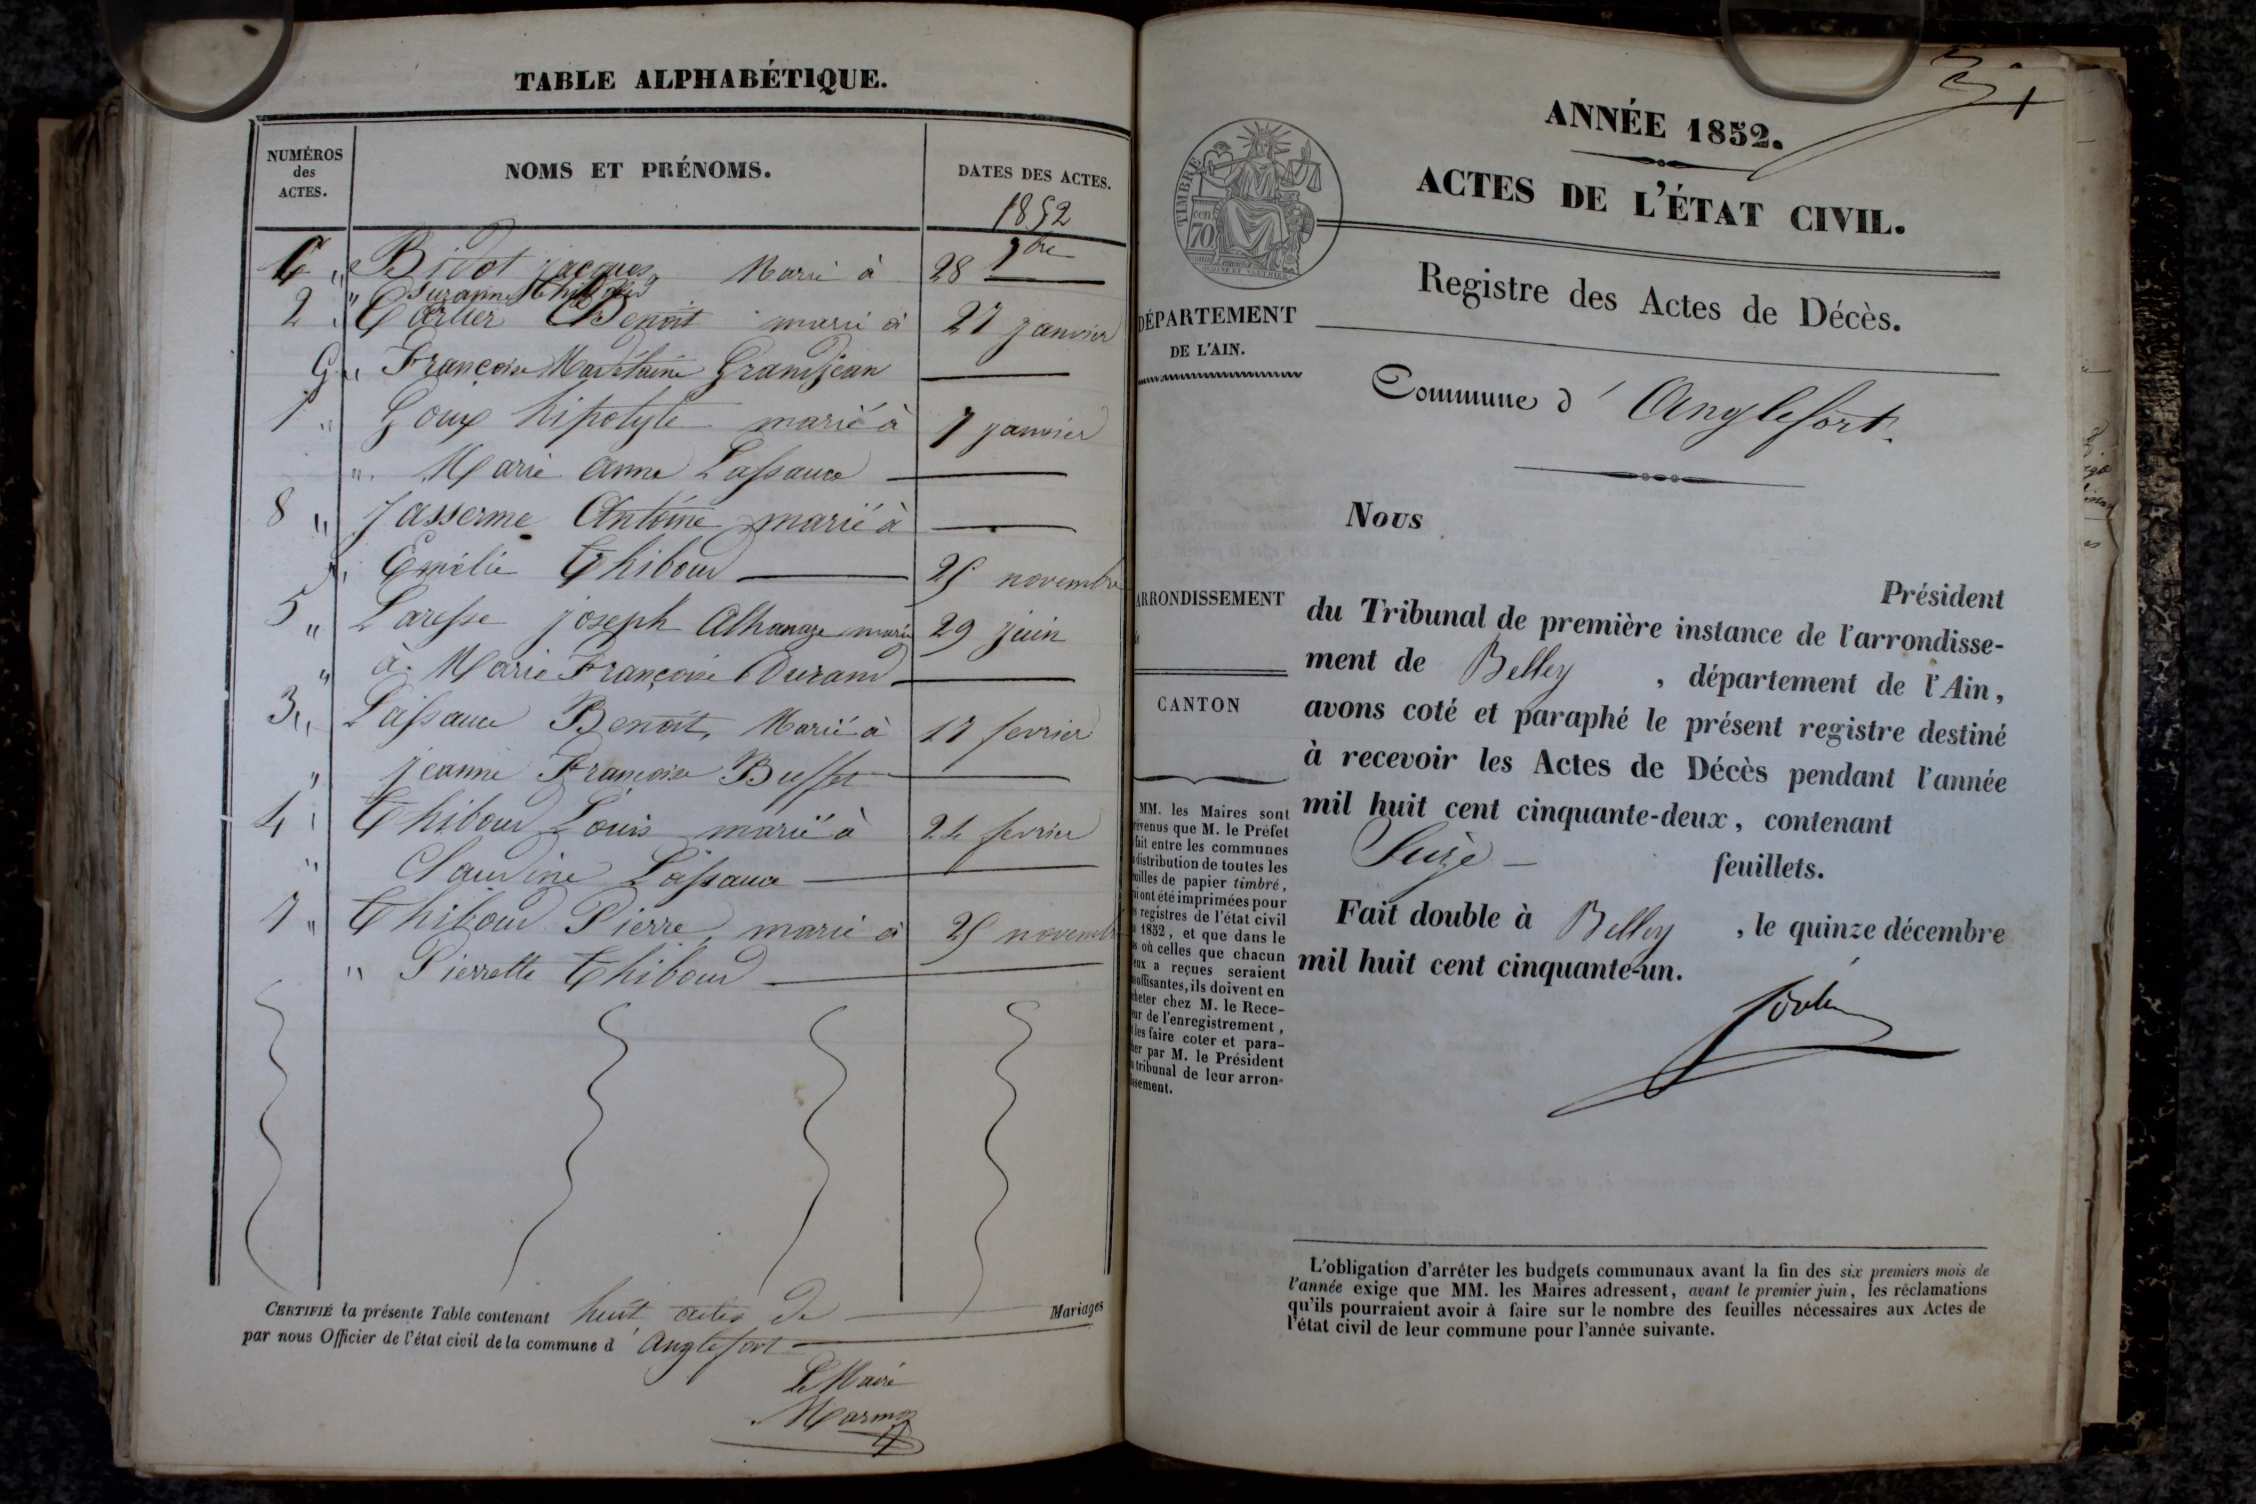 TABLE ALPHABÉTIQUE.
NUMÉROS
des
ACTES.
NOMS ET PRÉNOMS.
DATES DES ACTES.
1852
6 " Bidot jacques Marié à 28 7bre
Suzanne Thiboud
2 " Cartier Benoit marié à 27 janvier
" Françoise Grandjean
1 " Goux hipolyte marié à 7 janvier
" Marie Anne Lassauce
8 " Jasserme Antoine marié à
Emélie Thiboud 25 novembre
5 " Laresse joseph Athanaze marié 29 juin
" à Marie Françoise Durand
3 " Lassauce Benoit, Marié à 17 fevrier
" jeanne Françoise Buffet
4 " Thiboud Louis marié à 24 fevrier
" Claudine Lassauce
7 " Thiboud Pierre marié à 25 novembre
" Pierrette Thiboud
CERTIFIÉ la présente Table contenant huit actes de Mariages
par nous Officier de l'état civil de la commune d' Anglefort
Le Maire
ANNÉE 1852.
ACTES DE L'ÉTAT CIVIL.
TIMBRE
70 cen
Registre des Actes de Décès.
DÉPARTEMENT
DE L'AIN.
Commune d' Anglefort.
Nous
Président
du Tribunal de première instance de l'arrondisse-
ment de Belley, département de l'Ain,
avons coté et paraphé le présent registre destiné
à recevoir les Actes de Décès pendant l'année
mil huit cent cinquante-deux, contenant
Seize feuillets.
Fait double à Belley, le quinze décembre
mil huit cent cinquante-un.
ARRONDISSEMENT
CANTON
MM. les Maires sont
révenus que M. le Préfet
fait entre les communes
distribution de toutes les
uilles de papier timbré,
ui ont été imprimées pour
s registres de l'état civil
1852, et que dans le
s où celles que chacun
eux a reçues seraient
suffisantes, ils doivent en
heter chez M. le Rece-
ur de l'enregistrement,
les faire coter et para-
her par M. le Président
tribunal de leur arron-
issement.
L'obligation d'arrêter les budgets communaux avant la fin des six premiers mois de
l'année exige que MM. les Maires adressent, avant le premier juin, les réclamations
qu'ils pourraient avoir à faire sur le nombre des feuilles nécessaires aux Actes de
l'état civil de leur commune pour l'année suivante.